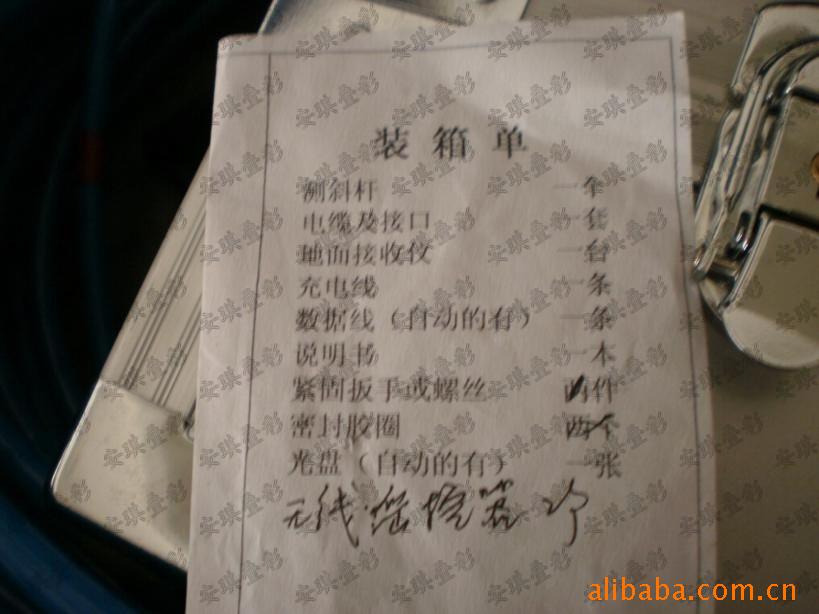 装箱单
测斜杆 一个
电缆及接口 一套
地面接收仪 一台
充电线 一条
数据线（自动的有） 一条
说明书 一本
紧固扳手或螺丝 两件
密封胶圈 两个
光盘（自动的有） 一张
无线
安琪叠彩
alibaba.com.cn